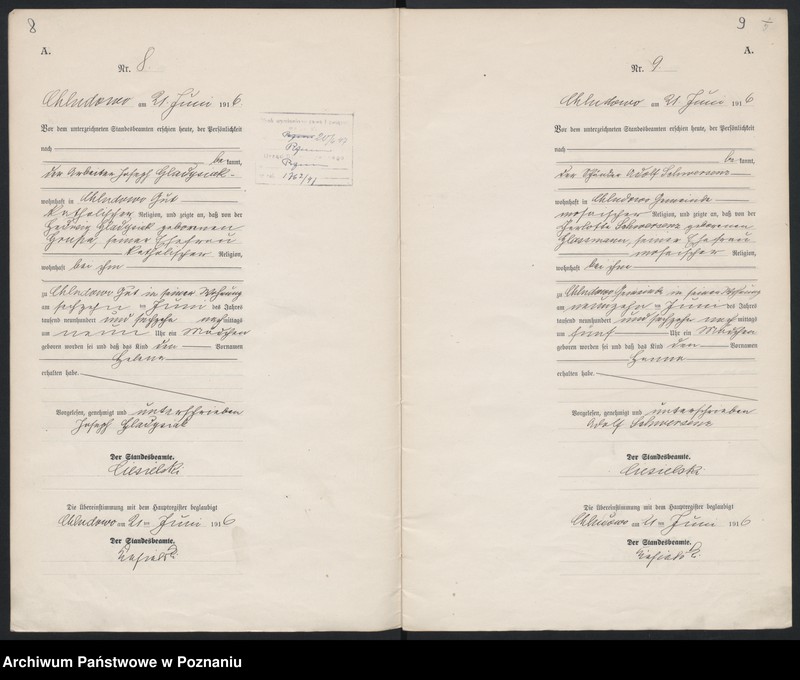 8
A.
Nr. 8
Chludowo am 21 Juni 1916
Vor dem unterzeichneten Standesbeamten erschien heute, der Persönlichkeit
nach
bekannt,
der Arbeiter Joseph Gladysiak
wohnhaft in Chludowo Gut
katholischer Religion, und zeigte an, daß von der
Hedwig Gladysiak geborenen
seiner Ehefrau
katholischer Religion,
wohnhaft bei ihm
zu Chludowo Gut in seiner Wohnung
am sechzehn Juni des Jahres
tausend neunhundert und sechzehn nachmittags
um neun Uhr ein Mädchen
geboren worden sei und daß das Kind den Vornamen
Helene
erhalten habe.
Vorgelesen, genehmigt und unterschrieben
Joseph Gladysiak
Der Standesbeamte.
Ciesielski
Die Übereinstimmung mit dem Hauptregister beglaubigt
Chludowo am 21 ten Juni 1916
Der Standesbeamte.
Ciesielski
9
A.
Nr. 9
Chludowo am 21 Juni 1916
Vor dem unterzeichneten Standesbeamten erschien heute, der Persönlichkeit
nach
bekannt,
der Händler Adolf Schwersenz
wohnhaft in Chludowo Gemeinde
mosaischer Religion, und zeigte an, daß von der
Schwersenz geborenen
Glassmann, seiner Ehefrau
mosaischer Religion,
wohnhaft bei ihm
zu Chludowo Gemeinde in seiner Wohnung
am neunzehn Juni des Jahres
tausend neunhundert und sechzehn nachmittags
um fünf Uhr ein Mädchen
geboren worden sei und daß das Kind den Vornamen
Hanna
erhalten habe.
Vorgelesen, genehmigt und unterschrieben
Adolf Schwersenz
Der Standesbeamte.
Ciesielski
Die Übereinstimmung mit dem Hauptregister beglaubigt
Chludowo am 21 ten Juni 1916
Der Standesbeamte.
Ciesielski
Archiwum Państwowe w Poznaniu